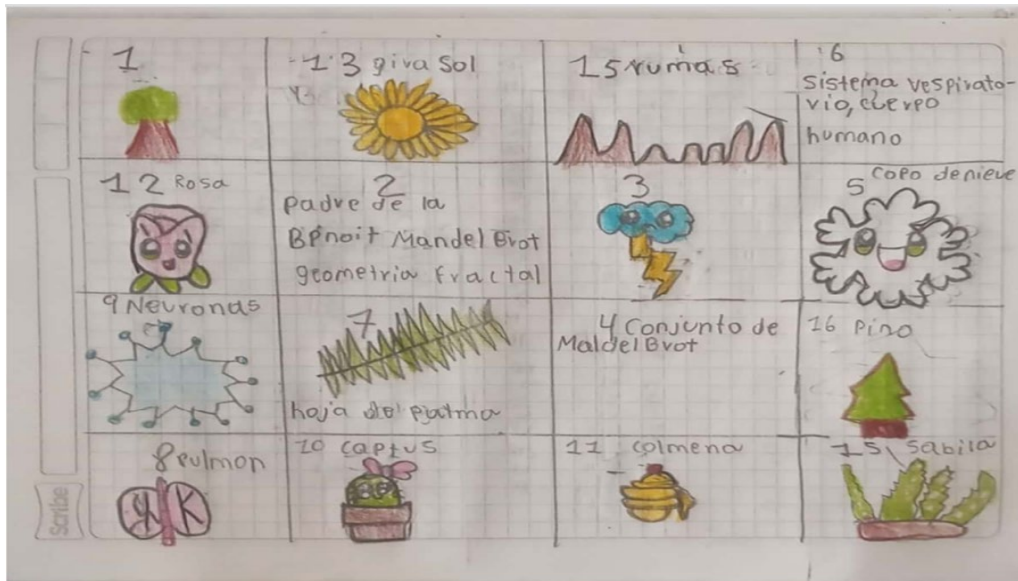 1
13 gira sol
15 rumas
6
sistema respirato-
rio, cuerpo
humano
12 Rosa
2
padre de la
Benoit MandelBrot
geometria fractal
3
5 copo de nieve
9 Neuronas
7
hoja de palma
4 conjunto de
MaldelBrot
16 pino
8 pulmon
10 captus
11 colmena
15 sabila
Scribe